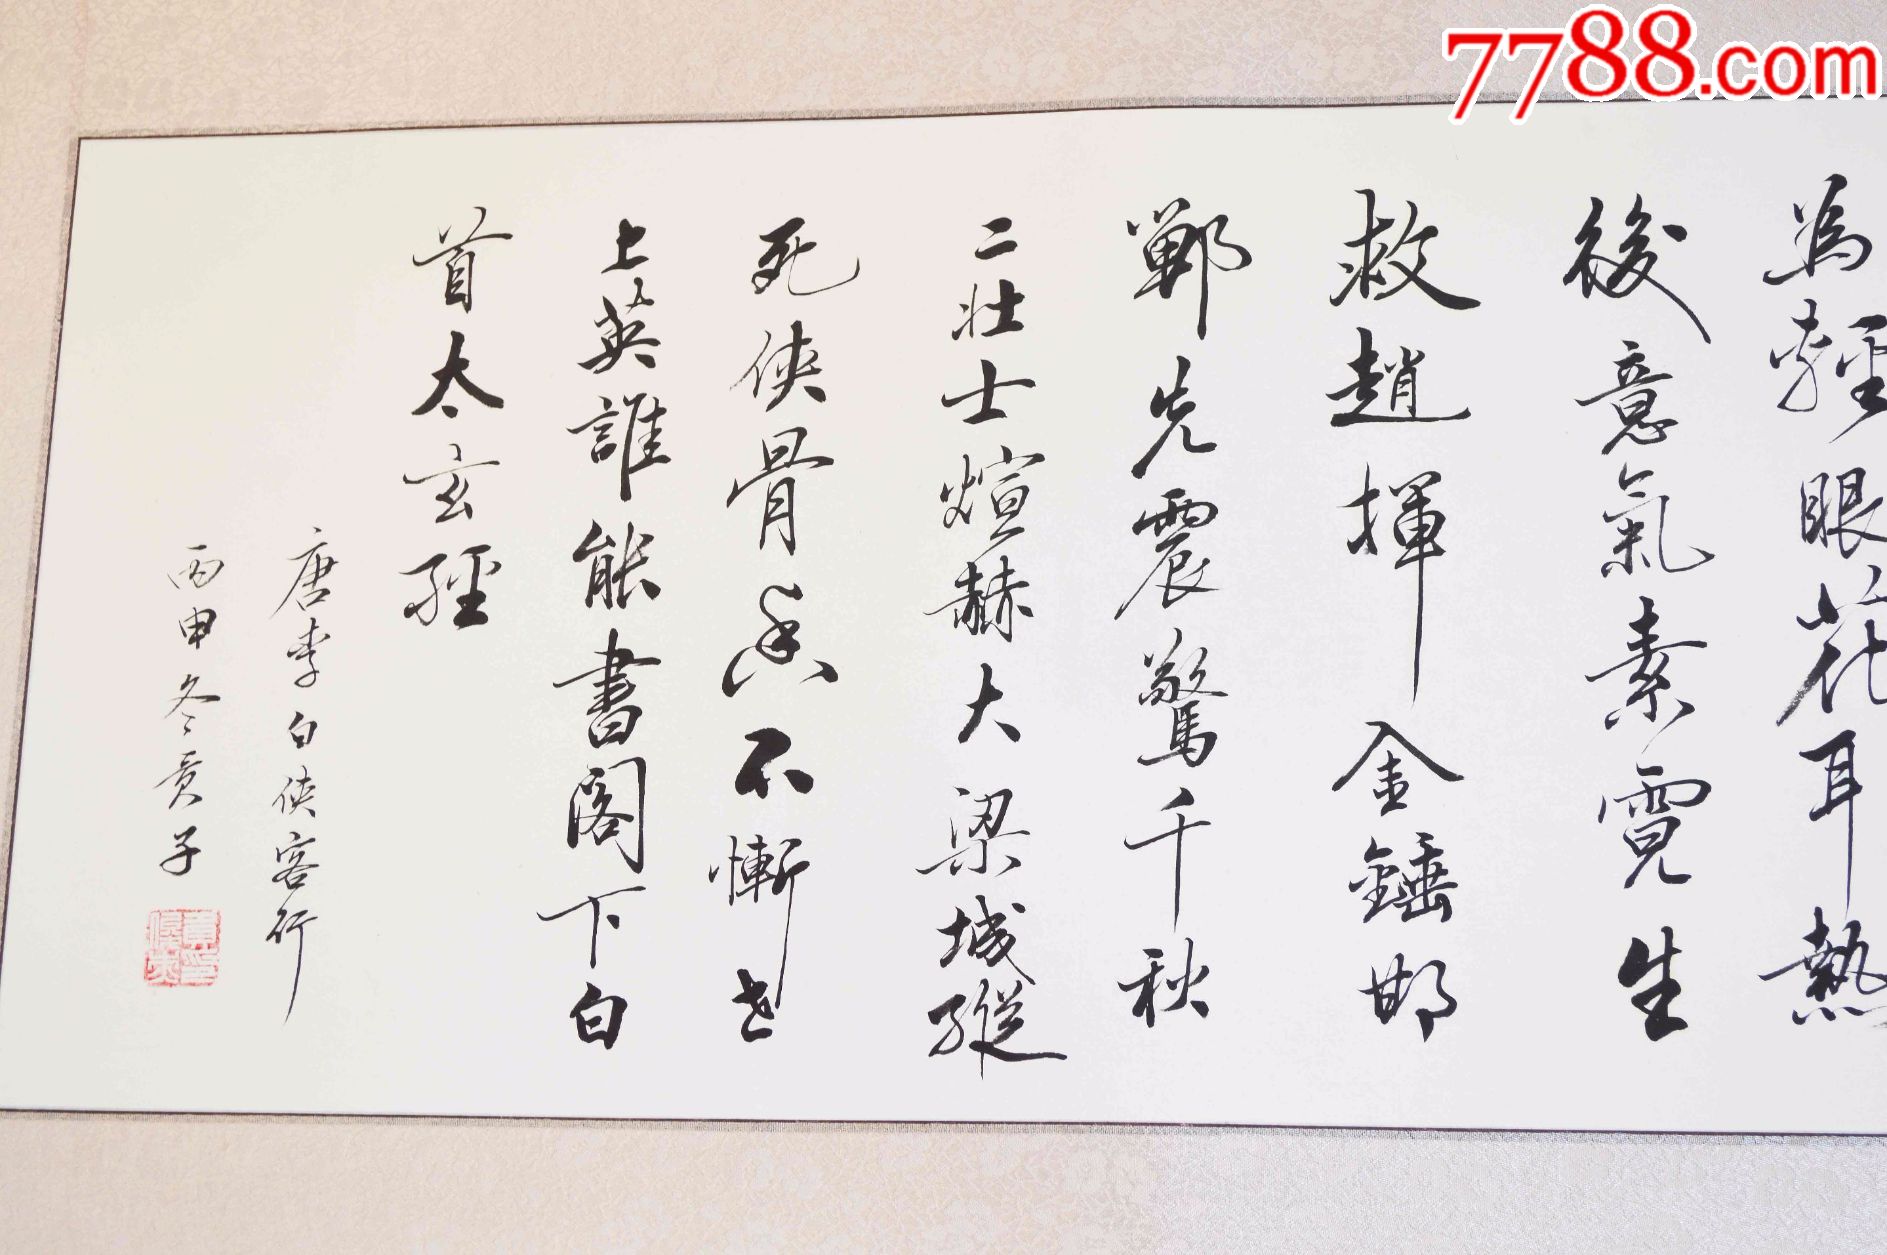 7788.com
為輕眼花耳熱
後意氣素霓生
救趙揮金錘邯
鄲先震驚千秋
二壯士煊赫大梁城縱
死俠骨香不慚世
上英誰能書閣下白
首太玄經
唐李白俠客行
丙申冬貢子